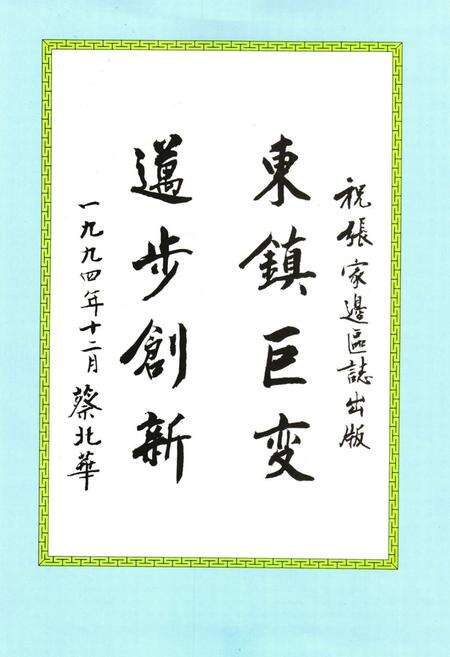 祝張家邊區誌出版
東鎮巨变
邁步創新
一九九四年十二月 蔡北華